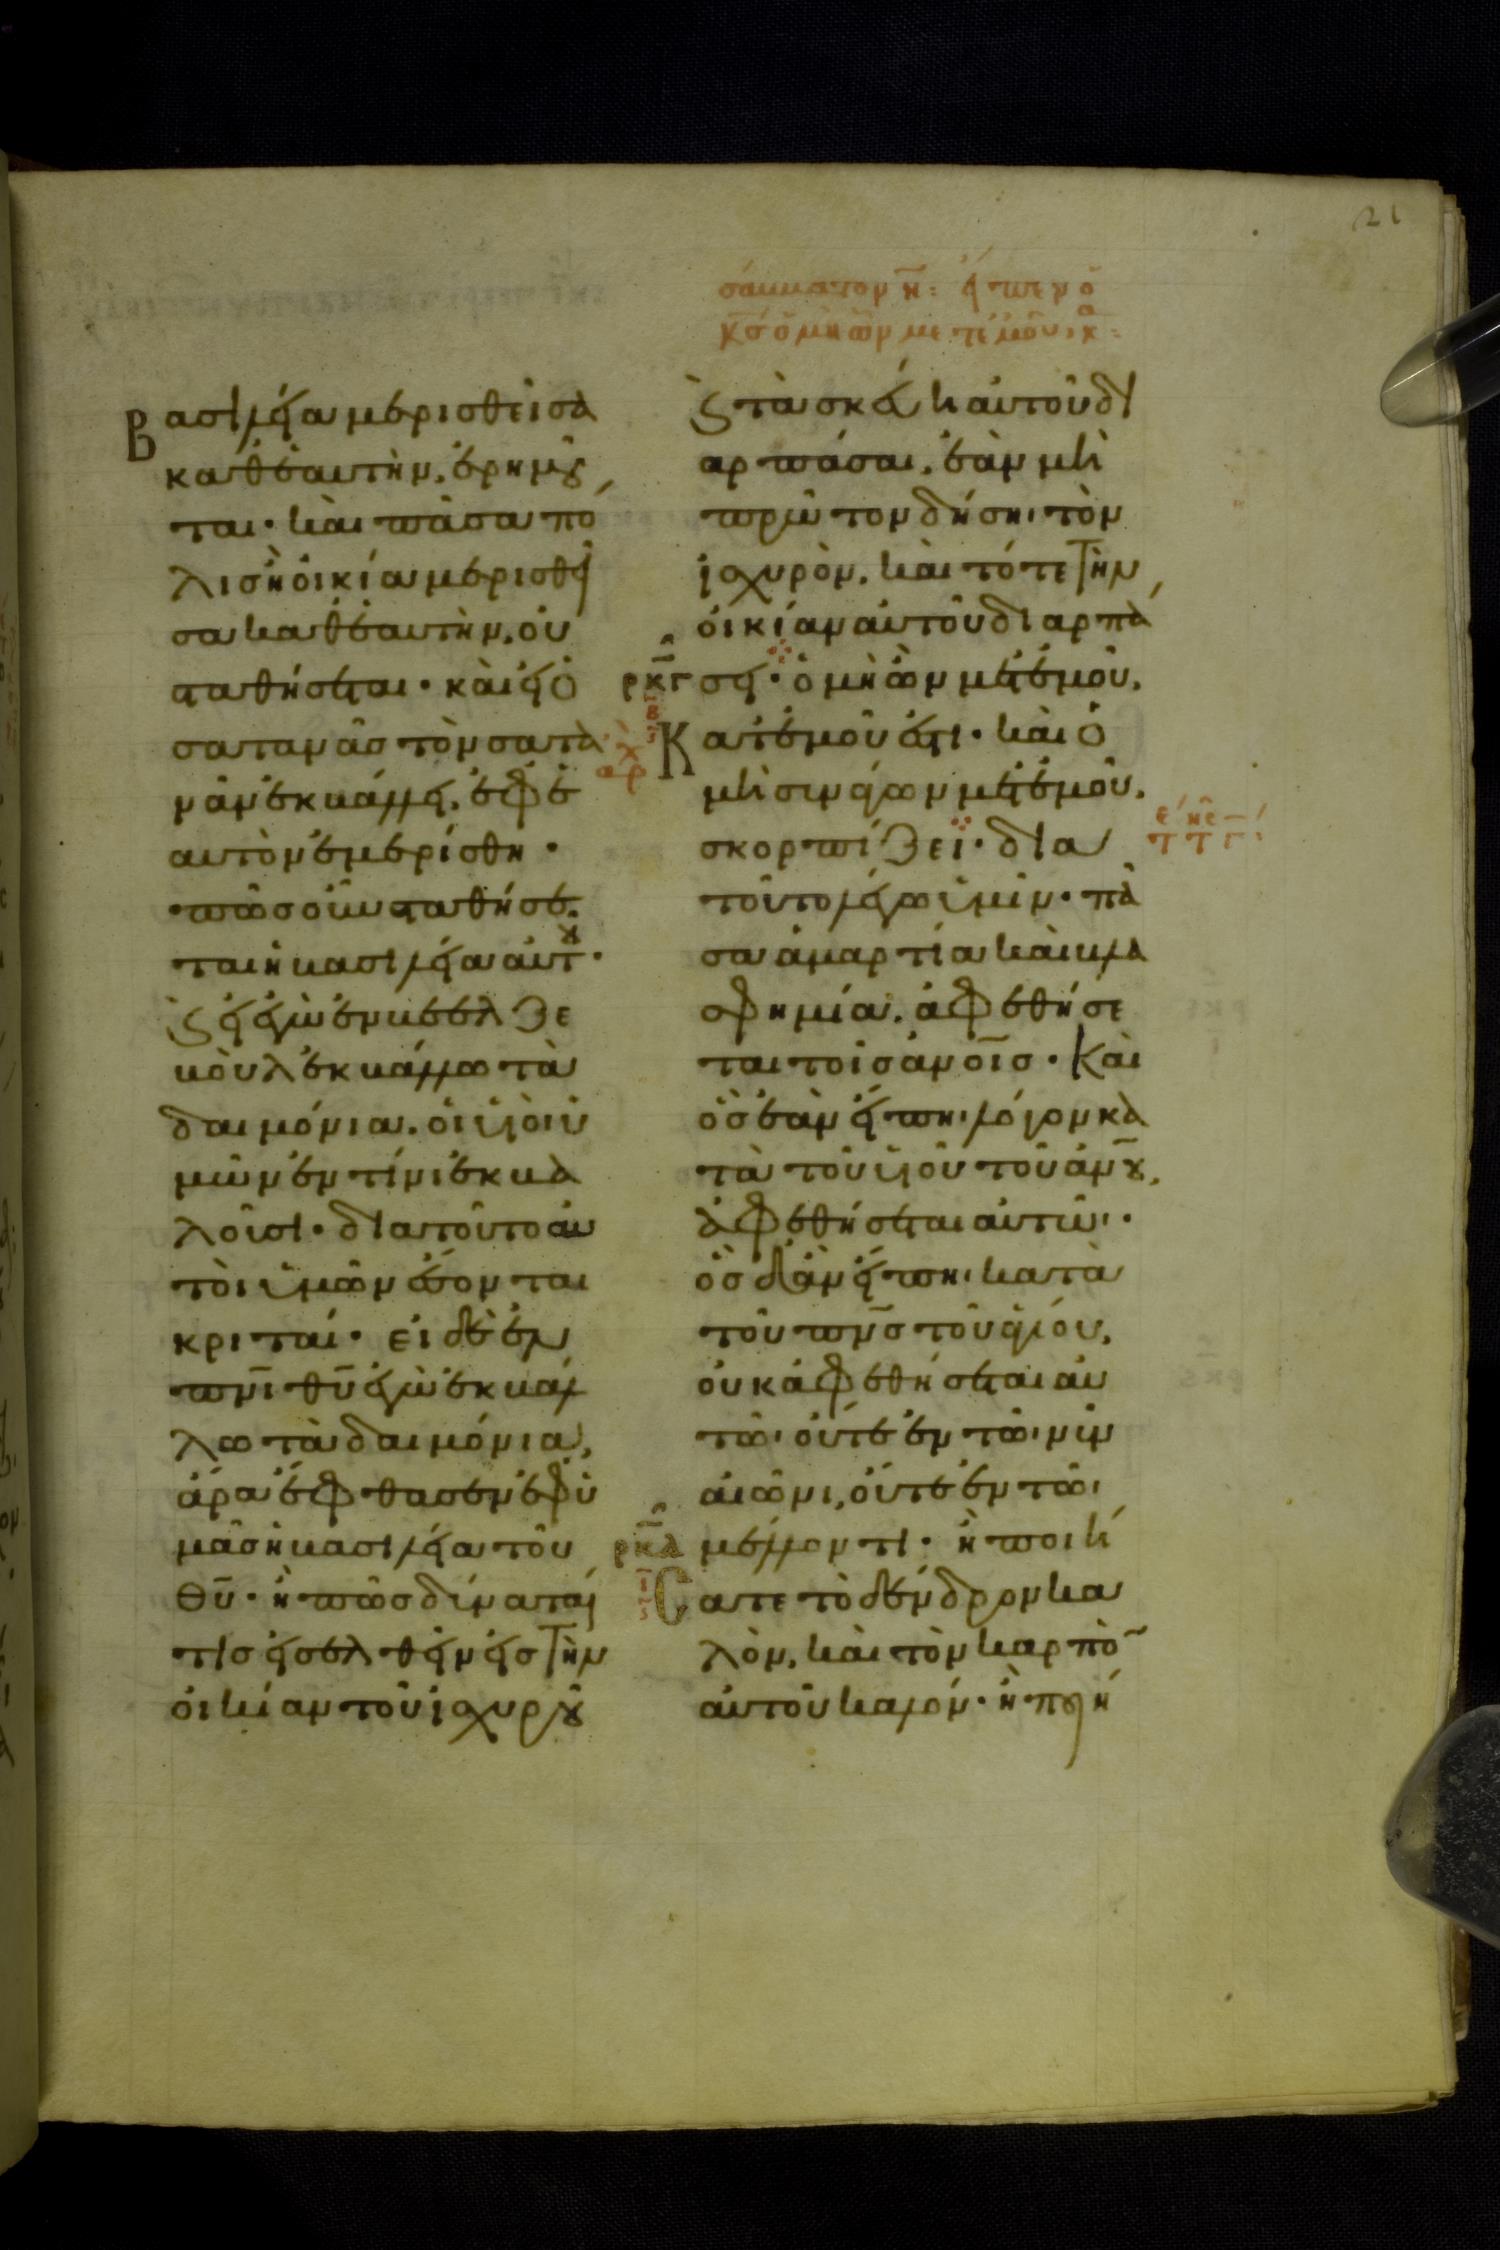 21
σάββατον η: εἶπεν ὁ
κς ὁ μὴ ὢν μετ' ἐμοῦ, κ
Βασιλεία μερισθεῖσα
καθ' ἑαυτὴν, ἐρημοῦ
ται· καὶ πᾶσα πό
λις ἢ οἰκία μερισθεῖ
σα καθ' ἑαυτὴν, οὐ
σταθήσεται· καὶ εἰ ὁ
σατανᾶς τὸν σατα
νᾶν ἐκβάλλει, ἐφ' ἑ
αυτὸν ἐμερίσθη·
πῶς οὖν σταθήσε
ται ἡ βασιλεία αὐτοῦ·
καὶ εἰ ἐγὼ ἐν βεελζε
βοὺλ ἐκβάλλω τὰ
δαιμόνια, οἱ υἱοὶ ὑ
μῶν ἐν τίνι ἐκβα
λοῦσι· διατοῦτο αὐ
τοὶ ὑμῶν ἔσονται
κριταί· εἰ δὲ ἐν
πνι θυ ἐγὼ ἐκβάλ
λω τὰ δαιμόνια,
ἄρα ἔφθασεν ἐφ' ὑ
μᾶς ἡ βασιλεία τοῦ
θυ· ἢ πῶς δύναταί
τις εἰσελθεῖν εἰς τὴν
οἰκίαν τοῦ ἰσχυροῦ
καὶ τὰ σκεύη αὐτοῦ δι
αρπάσαι, ἐὰν μὴ
πρῶτον δήσῃ τὸν
ἰσχυρὸν, καὶ τότε τὴν
οἰκίαν αὐτοῦ διαρπά
ρκγ σει· ὁ μὴ ὢν μετ' ἐμοῦ,
Κατ' ἐμοῦ ἐστι· καὶ ὁ
μὴ συνάγων μετ' ἐμοῦ,
σκορπίζει· δια
τοῦτο λέγω ὑμῖν· πᾶ
σα ἁμαρτία καὶ βλα
σφημία, ἀφεθήσε
ται τοῖς ἀνοις· Καὶ
ὃς ἐὰν εἴπῃ λόγον κα
τὰ τοῦ υἱοῦ τοῦ ἀνου,
ἀφεθήσεται αὐτῶ·
ὃς δ' ἂν εἴπῃ κατὰ
τοῦ πνς τοῦ ἁγίου,
οὐκ ἀφεθήσεται αὐ
τῶ οὔτε ἐν τῶ νῦν
αἰῶνι, οὔτε ἐν τῶ
ρκδ μέλλοντι· ἢ ποιή
σατε τὸ δένδρον κα
λὸν, καὶ τὸν καρπὸ
αὐτοῦ καλόν· ἢ ποιή